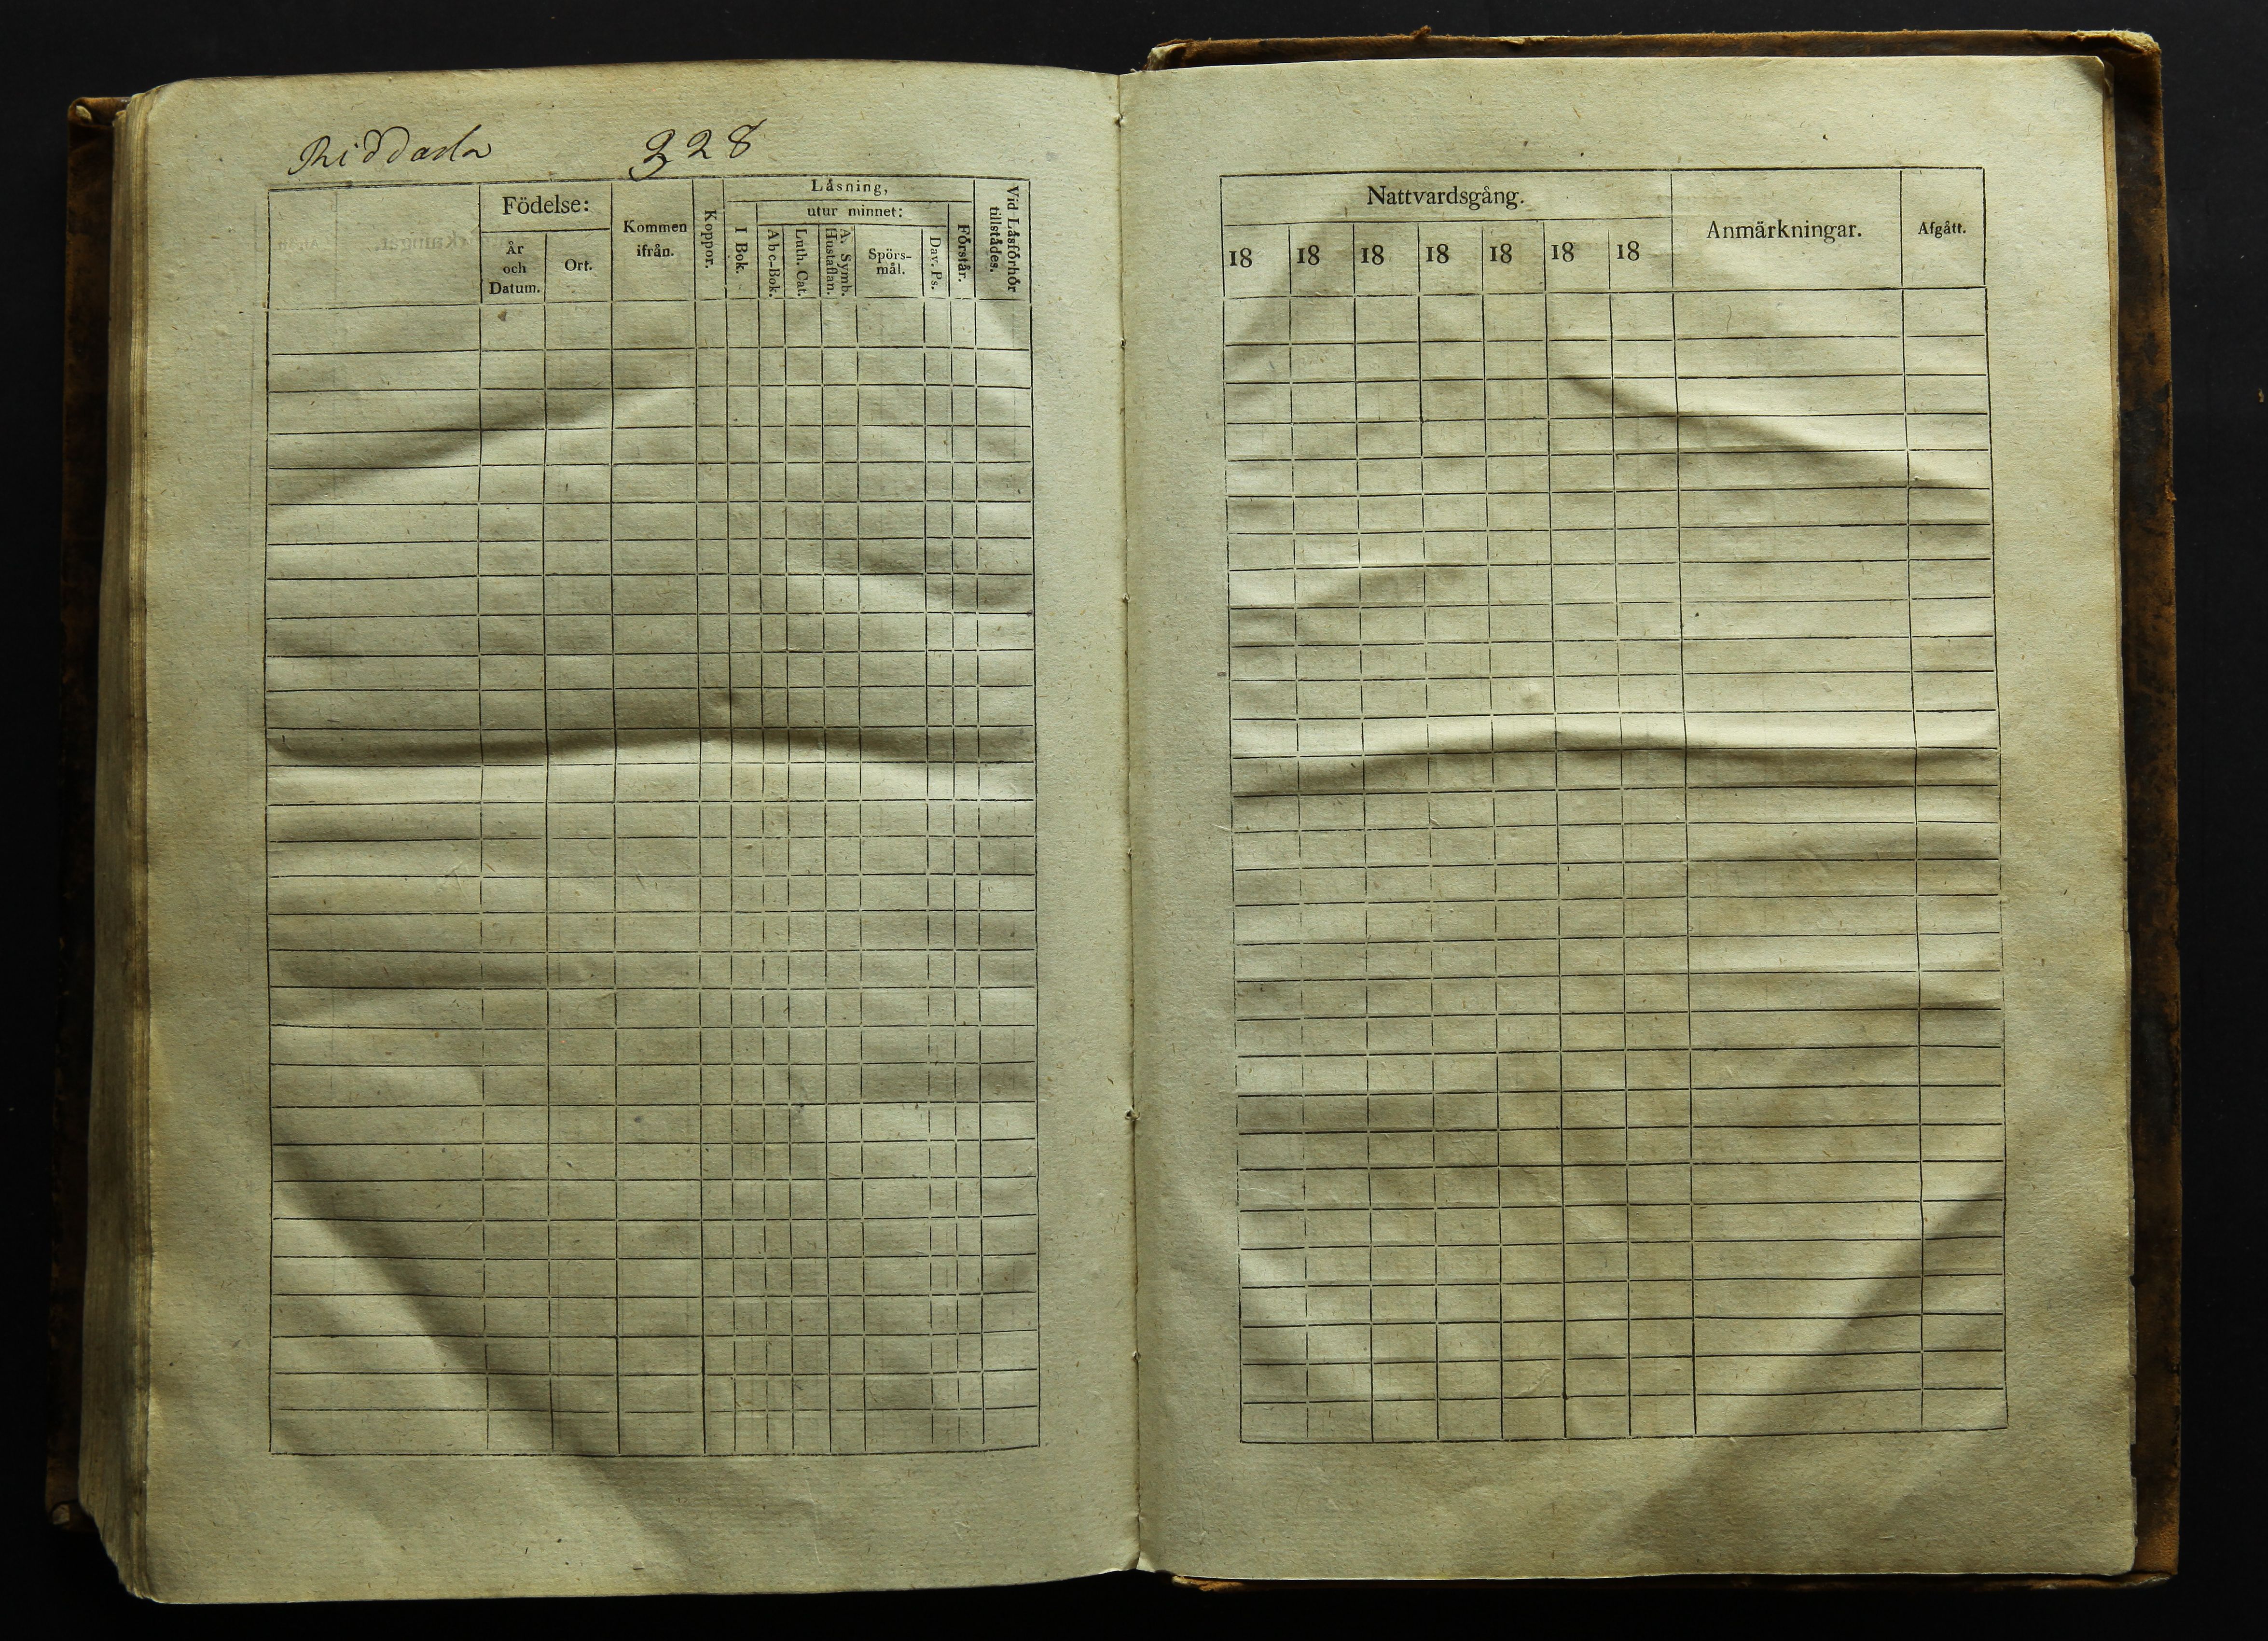 Riddarh 328
Födelse:
År och Datum.
Ort.
Kommen ifrån.
Koppor.
Låsning,
I Bok.
utur minnet:
A b c-Bok.
Luth. Cat.
A. Symb. Hustaflan.
Spörs-mål.
Dav. Ps.
Förstår.
Vid Låsförhör tillstådes.
Nattvardsgång.
18 18 18 18 18 18 18
Anmärkningar.
Afgått.